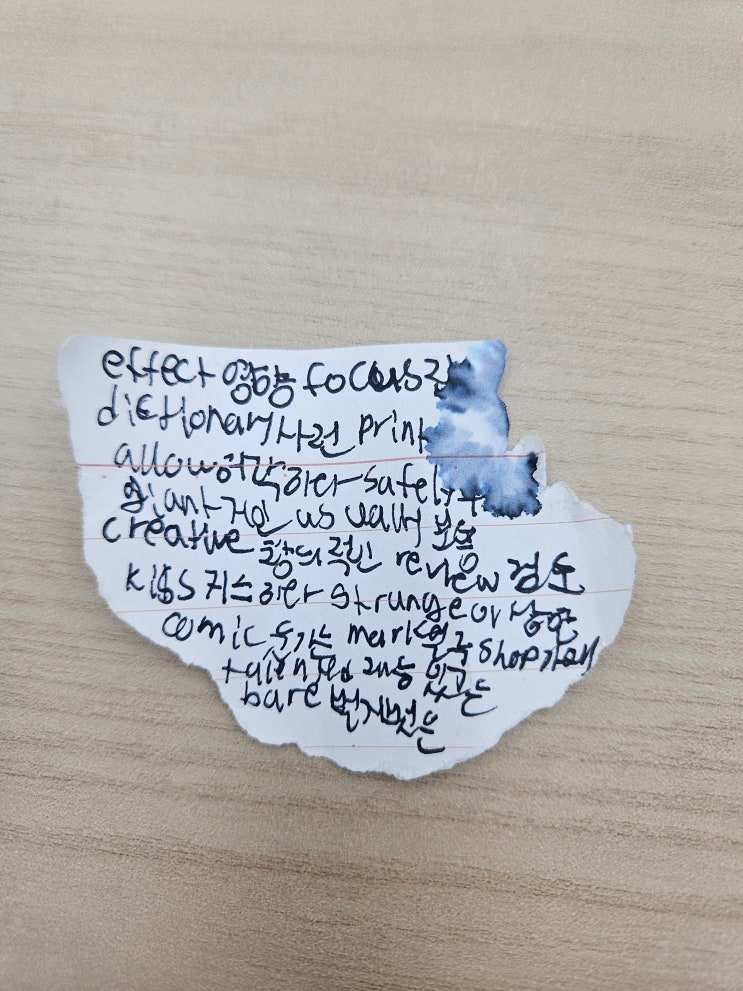 effect 영향 focus
dictionary 사전 print
allow 허락하다 safely
giant 거인 usually 보통
creative 창의적인 review 검토
kiss 키스하다 strange 이상한
comic 웃기는 mark 얼룩 shop 가게
talented 재능 있는
bare 벌거벗은